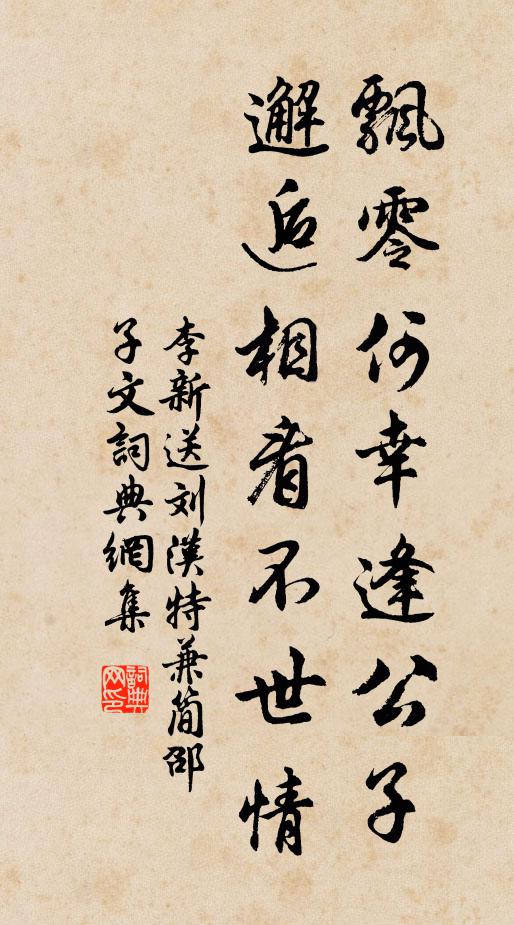 飄零何幸逢公子
邂逅相看不世情
李新送刘漢特兼简邵
子文詞典網集
詞典网印